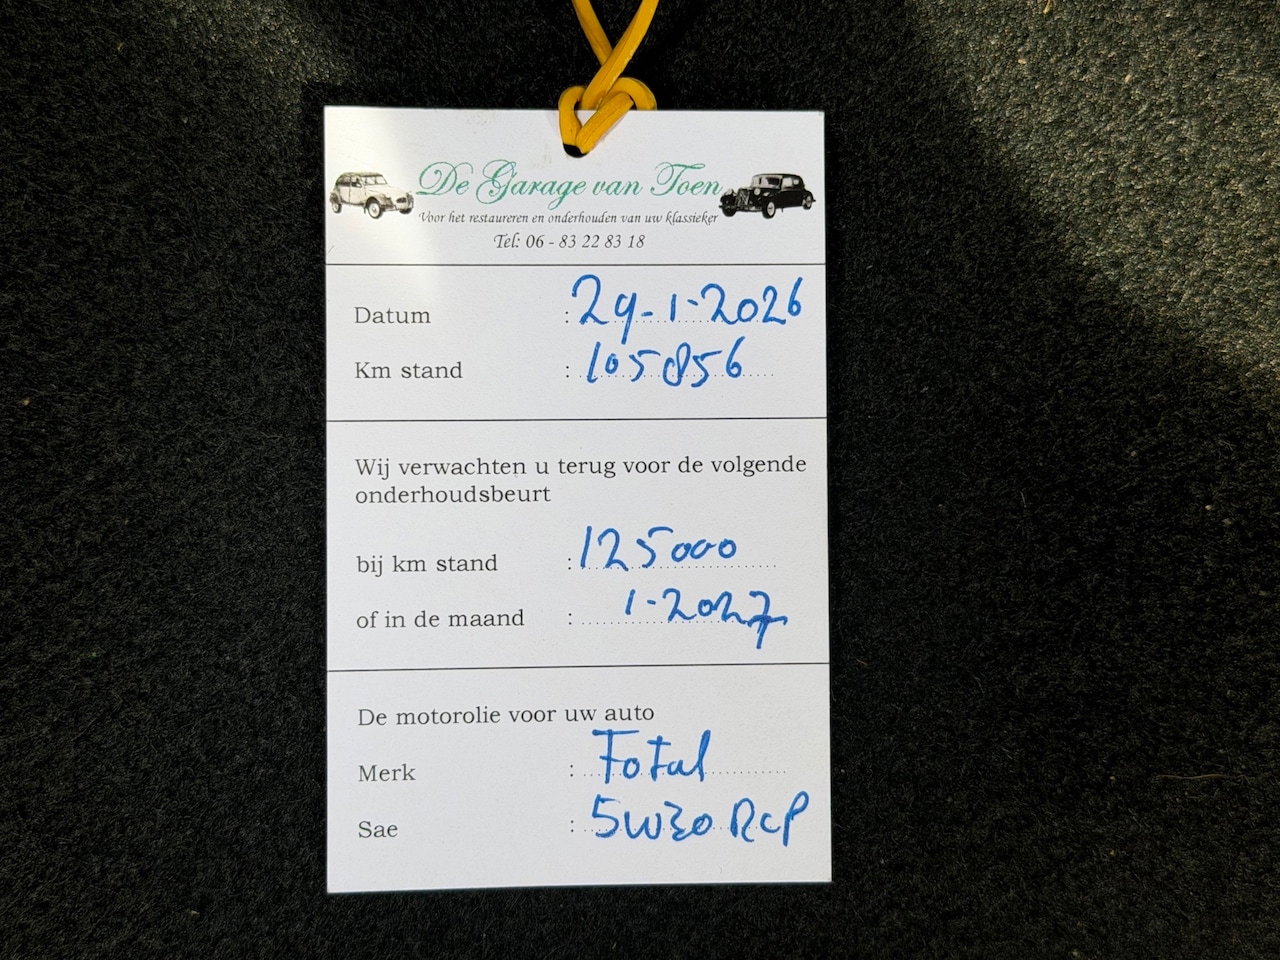 De Garage van Toen
Voor het restaureren en onderhouden van uw klassieker
Tel: 06 - 83 22 83 18
Datum : 29-1-2026
Km stand : 105856
Wij verwachten u terug voor de volgende
onderhoudsbeurt
bij km stand : 125000
of in de maand : 1-2027
De motorolie voor uw auto
Merk : Total
Sae : 5W30 RCP